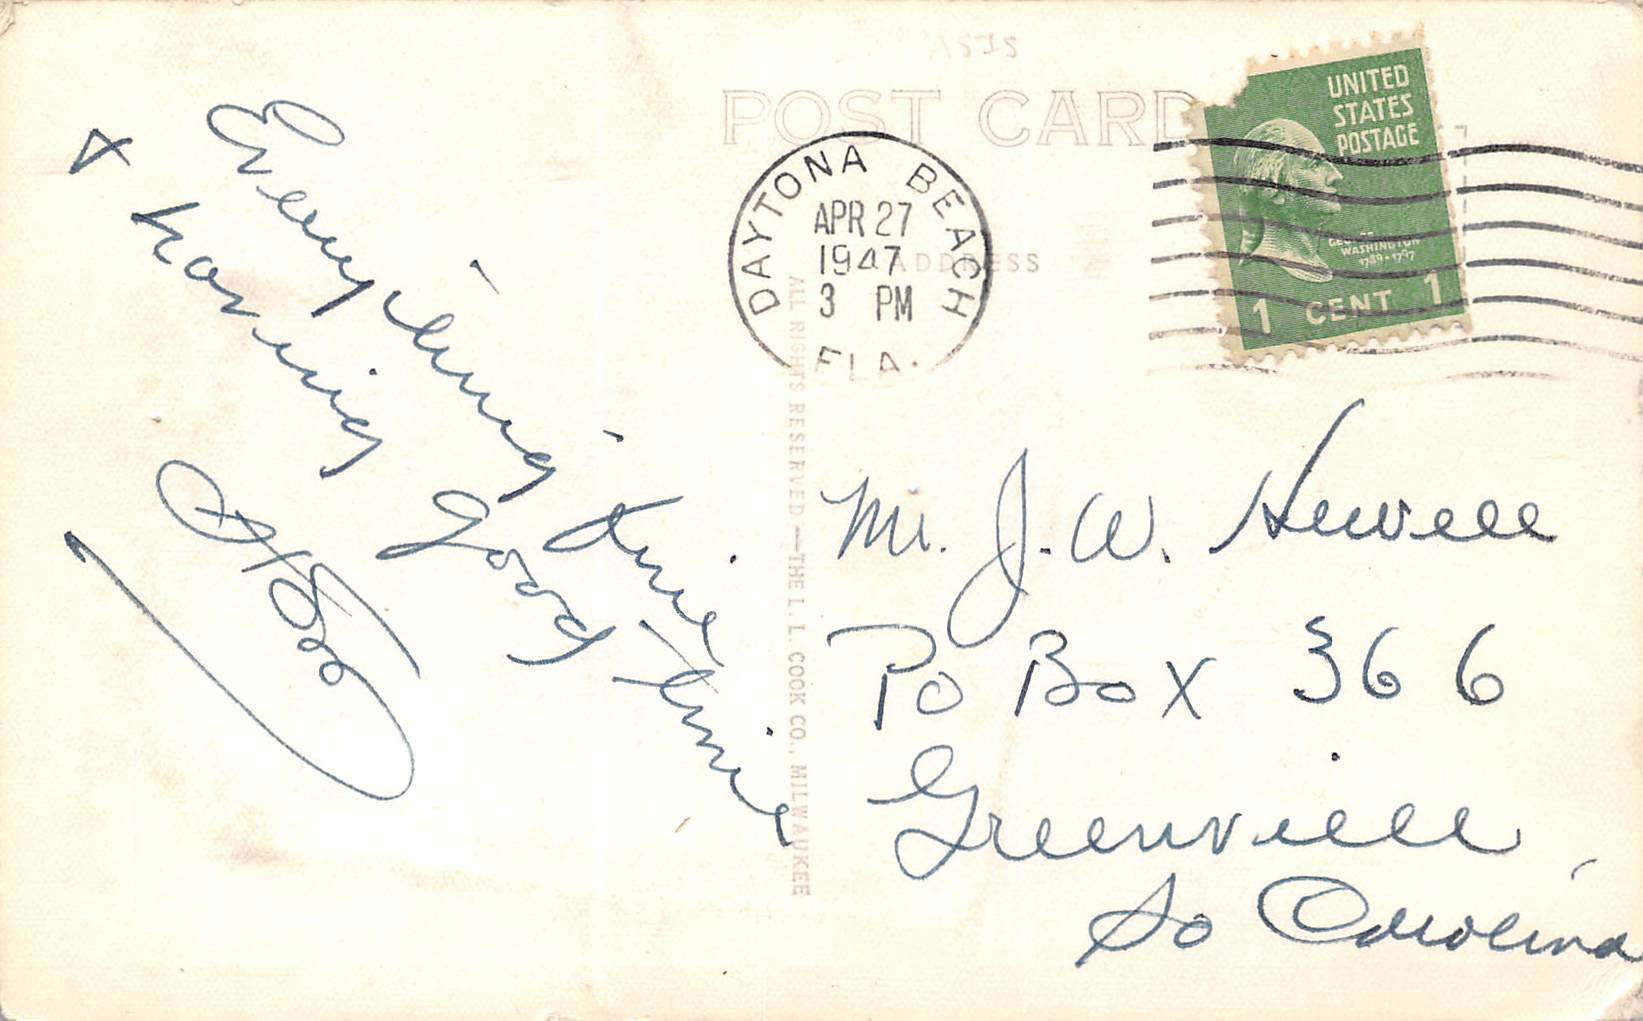 POST CARD
ADDRESS
DAYTONA BEACH
APR 27
1947
3 PM
FLA.
UNITED
STATES
POSTAGE
GEORGE
WASHINGTON
1789-1797
1 CENT 1
Everything fine
& having good time
ALL RIGHTS RESERVED—THE L. L. COOK CO., MILWAUKEE
Mr. J. W. Hewell
PO Box 366
Greenville,
So Carolina